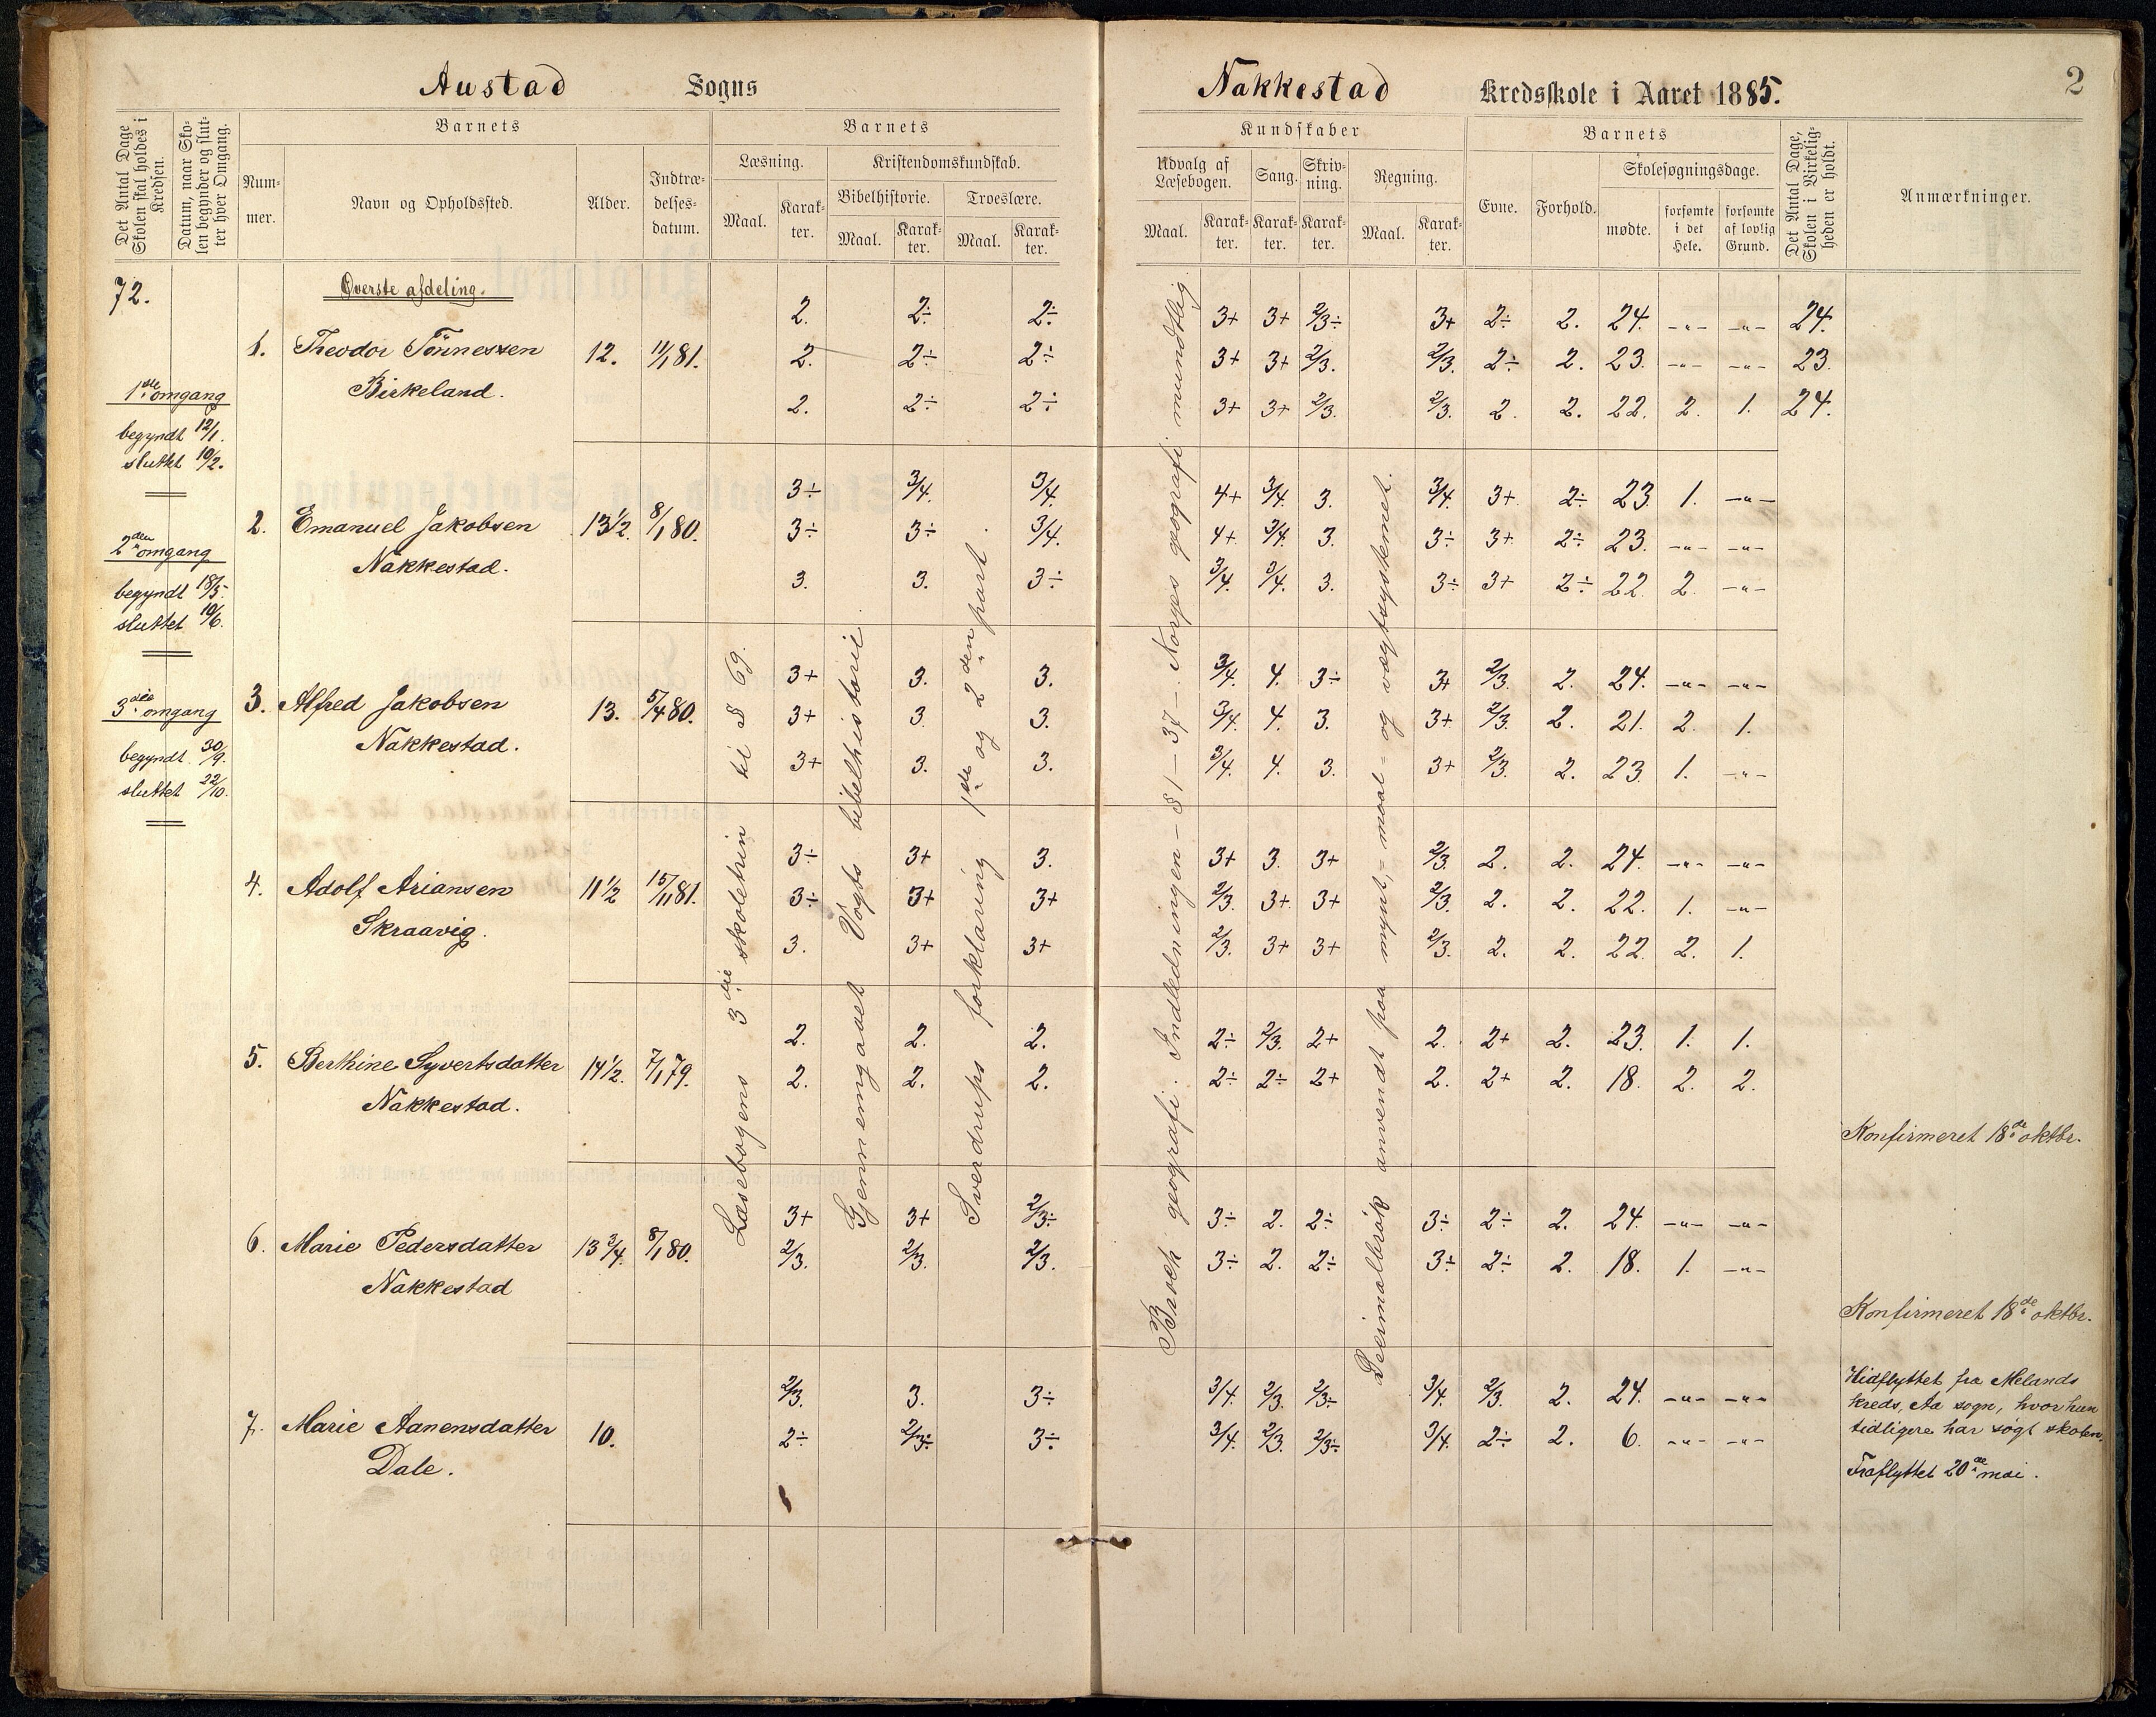 Austad Sogns
Nakkestad Kredsskole i Aaret 1885.
2
Det Antal Dage Skolen skal holdes i Kredsen.
Datum, naar Skolen begynder og slutter hver Omgang.
Barnets
Nummer.
Navn og Opholdssted.
Alder.
Indtrædelsesdatum.
Barnets
Læsning.
Maal.
Karakter.
Kristendomskundskab.
Bibelhistorie.
Maal.
Karakter.
Troeslære.
Maal.
Karakter.
Kundskaber
Udvalg af Læsebogen.
Maal.
Karakter.
Sang.
Karakter.
Skrivning.
Karakter.
Regning.
Maal.
Karakter.
Barnets
Evne.
Forhold.
Skolesøgningsdage.
mødte.
forsømte i det Hele.
forsømte af lovlig Grund.
Det Antal Dage, Skolen i Virkeligheden er holdt.
Anmærkninger.
72.
1ste omgang
begyndt 12/1.
sluttet 10/2.
2den omgang
begyndt 18/5.
sluttet 10/6.
3die omgang
begyndt 30/9.
sluttet 22/10.
Øverste afdeling.
Læsebogens 3die skoletrin til § 69.
Gjennemgaaet Vogts bibelhistorie.
Sverdrups forklaring 1ste og 2den part.
Broch geografi. Indledningen – § 1 – 37 – Norges geografi mundtlig.
Decimalbrøk anvendt paa mynt,= maal= og vægtsystemet.
2. 2÷ 2÷ 3+ 3+ 2/3÷ 3+ 2÷ 2. 24. -"- -"- 24.
1. Theodor Tönnessen 12. 11/1 81. 2. 2÷ 2÷ 3+ 3+ 2/3. 2/3. 2÷ 2. 23. -"- -"- 23.
Birkeland. 2. 2÷ 2÷ 3+ 3+ 2/3. 2/3. 2. 2. 22. 2. 1. 24.
3÷ 3/4. 3/4. 4+ 3/4. 3. 3/4. 3+ 2÷ 23. 1. -"-
2. Emanuel Jakobsen 13½. 8/1 80. 3÷ 3÷ 3/4. 4+ 3/4. 3. 3÷ 3+ 2÷ 23. -"- -"-
Nakkestad. 3. 3. 3÷ 3/4. 3/4. 3. 3÷ 3+ 2÷ 22. 2. -"-
3+ 3. 3. 3/4. 4. 3÷ 3+ 2/3. 2. 24. -"- -"-
3. Alfred Jakobsen 13. 5/4 80. 3+ 3. 3. 3/4. 4. 3. 3+ 2/3. 2. 21. 2. 1.
Nakkestad. 3+ 3. 3. 3/4. 4. 3. 3+ 2/3. 2. 23. 1. -"-
3÷ 3+ 3. 3+ 3. 3+ 2/3. 2. 2. 24. -"- -"-
4. Adolf Ariansen 11½ 15/11 81. 3÷ 3+ 3+ 2/3. 3+ 3+ 2/3. 2. 2. 22. 1. -"-
Skraavig. 3. 3+ 3+ 2/3. 3+ 3+ 2/3. 2. 2. 22. 2. 1.
2. 2. 2. 2÷ 2/3. 2+ 2. 2+ 2. 23. 1. 1.
5. Berthine Syvertsdatter 14½. 7/1 79. 2. 2. 2. 2÷ 2÷ 2+ 2. 2+ 2. 18. 2. 2.
Nakkestad.
Konfirmeret 18de oktbr.
3+ 3+ 2/3÷ 3÷ 2. 2÷ 3÷ 2÷ 2. 24. -"- -"-
6. Marie Pedersdatter 13¾. 8/1 80. 2/3. 2/3. 2/3. 3÷ 2. 2÷ 3÷ 2÷ 2. 18. 1. -"-
Nakkestad
Konfirmeret 18de oktbr.
2/3. 3. 3÷ 3/4. 2/3. 2/3÷ 3/4. 2/3. 2. 24. -"- -"-
7. Marie Aanensdatter 10. 2÷ 2/3÷ 3÷ 3/4. 2/3. 2/3÷ 3/4. 2÷ 2. 6. -"- -"-
Dale.
Hidflyttet fra Melands
kreds, Aa sogn, hvor hun
tidligere har søgt skolen.
Fraflyttet 20de mai.